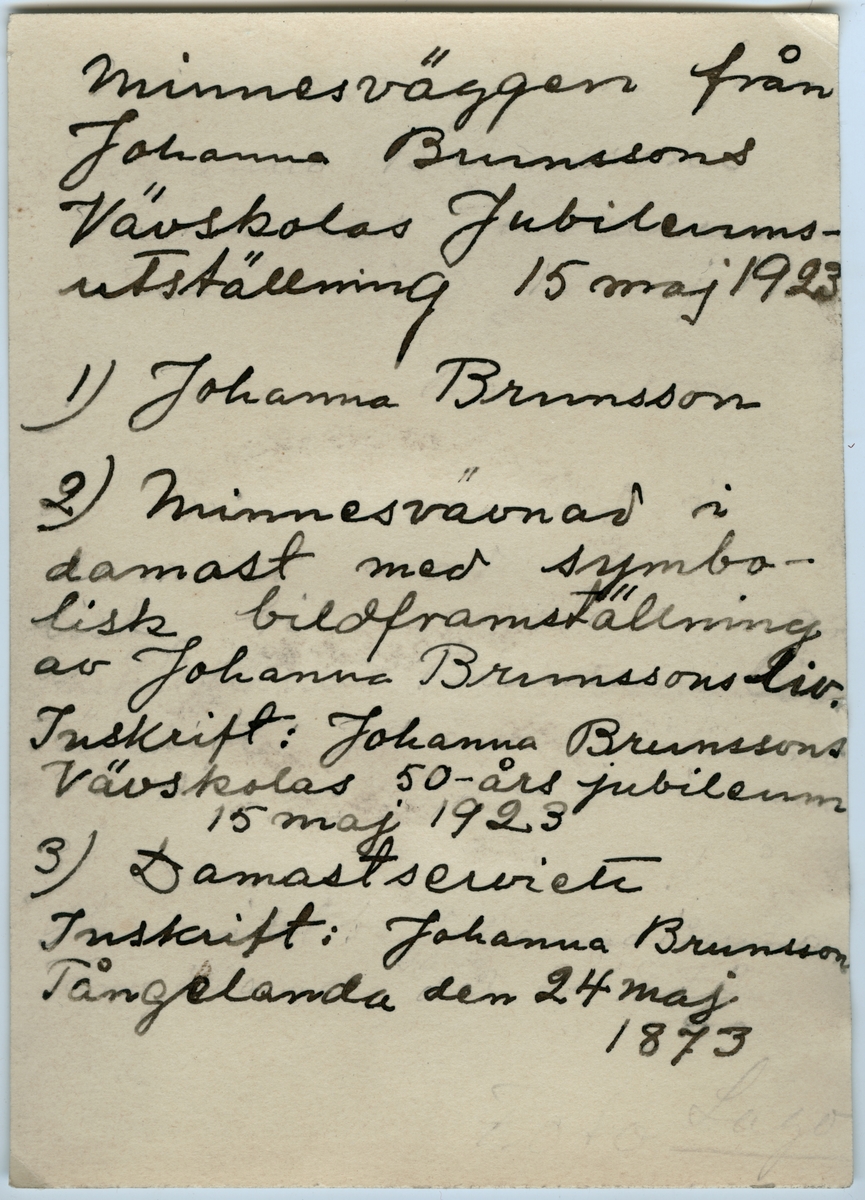 Minnesväggen från
Johanna Brunssons
Vävskolas Jubileums-
utställning 15 maj 1923
1) Johanna Brunsson
2) Minnesvävnad i
damast med symbo-
lisk bildframställning
av Johanna Brunssons liv.
Inskrift: Johanna Brunssons
Vävskolas 50-års jubileum
15 maj 1923
3) Damastserviett
Inskrift: Johanna Brunsson
Tångelanda den 24 maj
1873